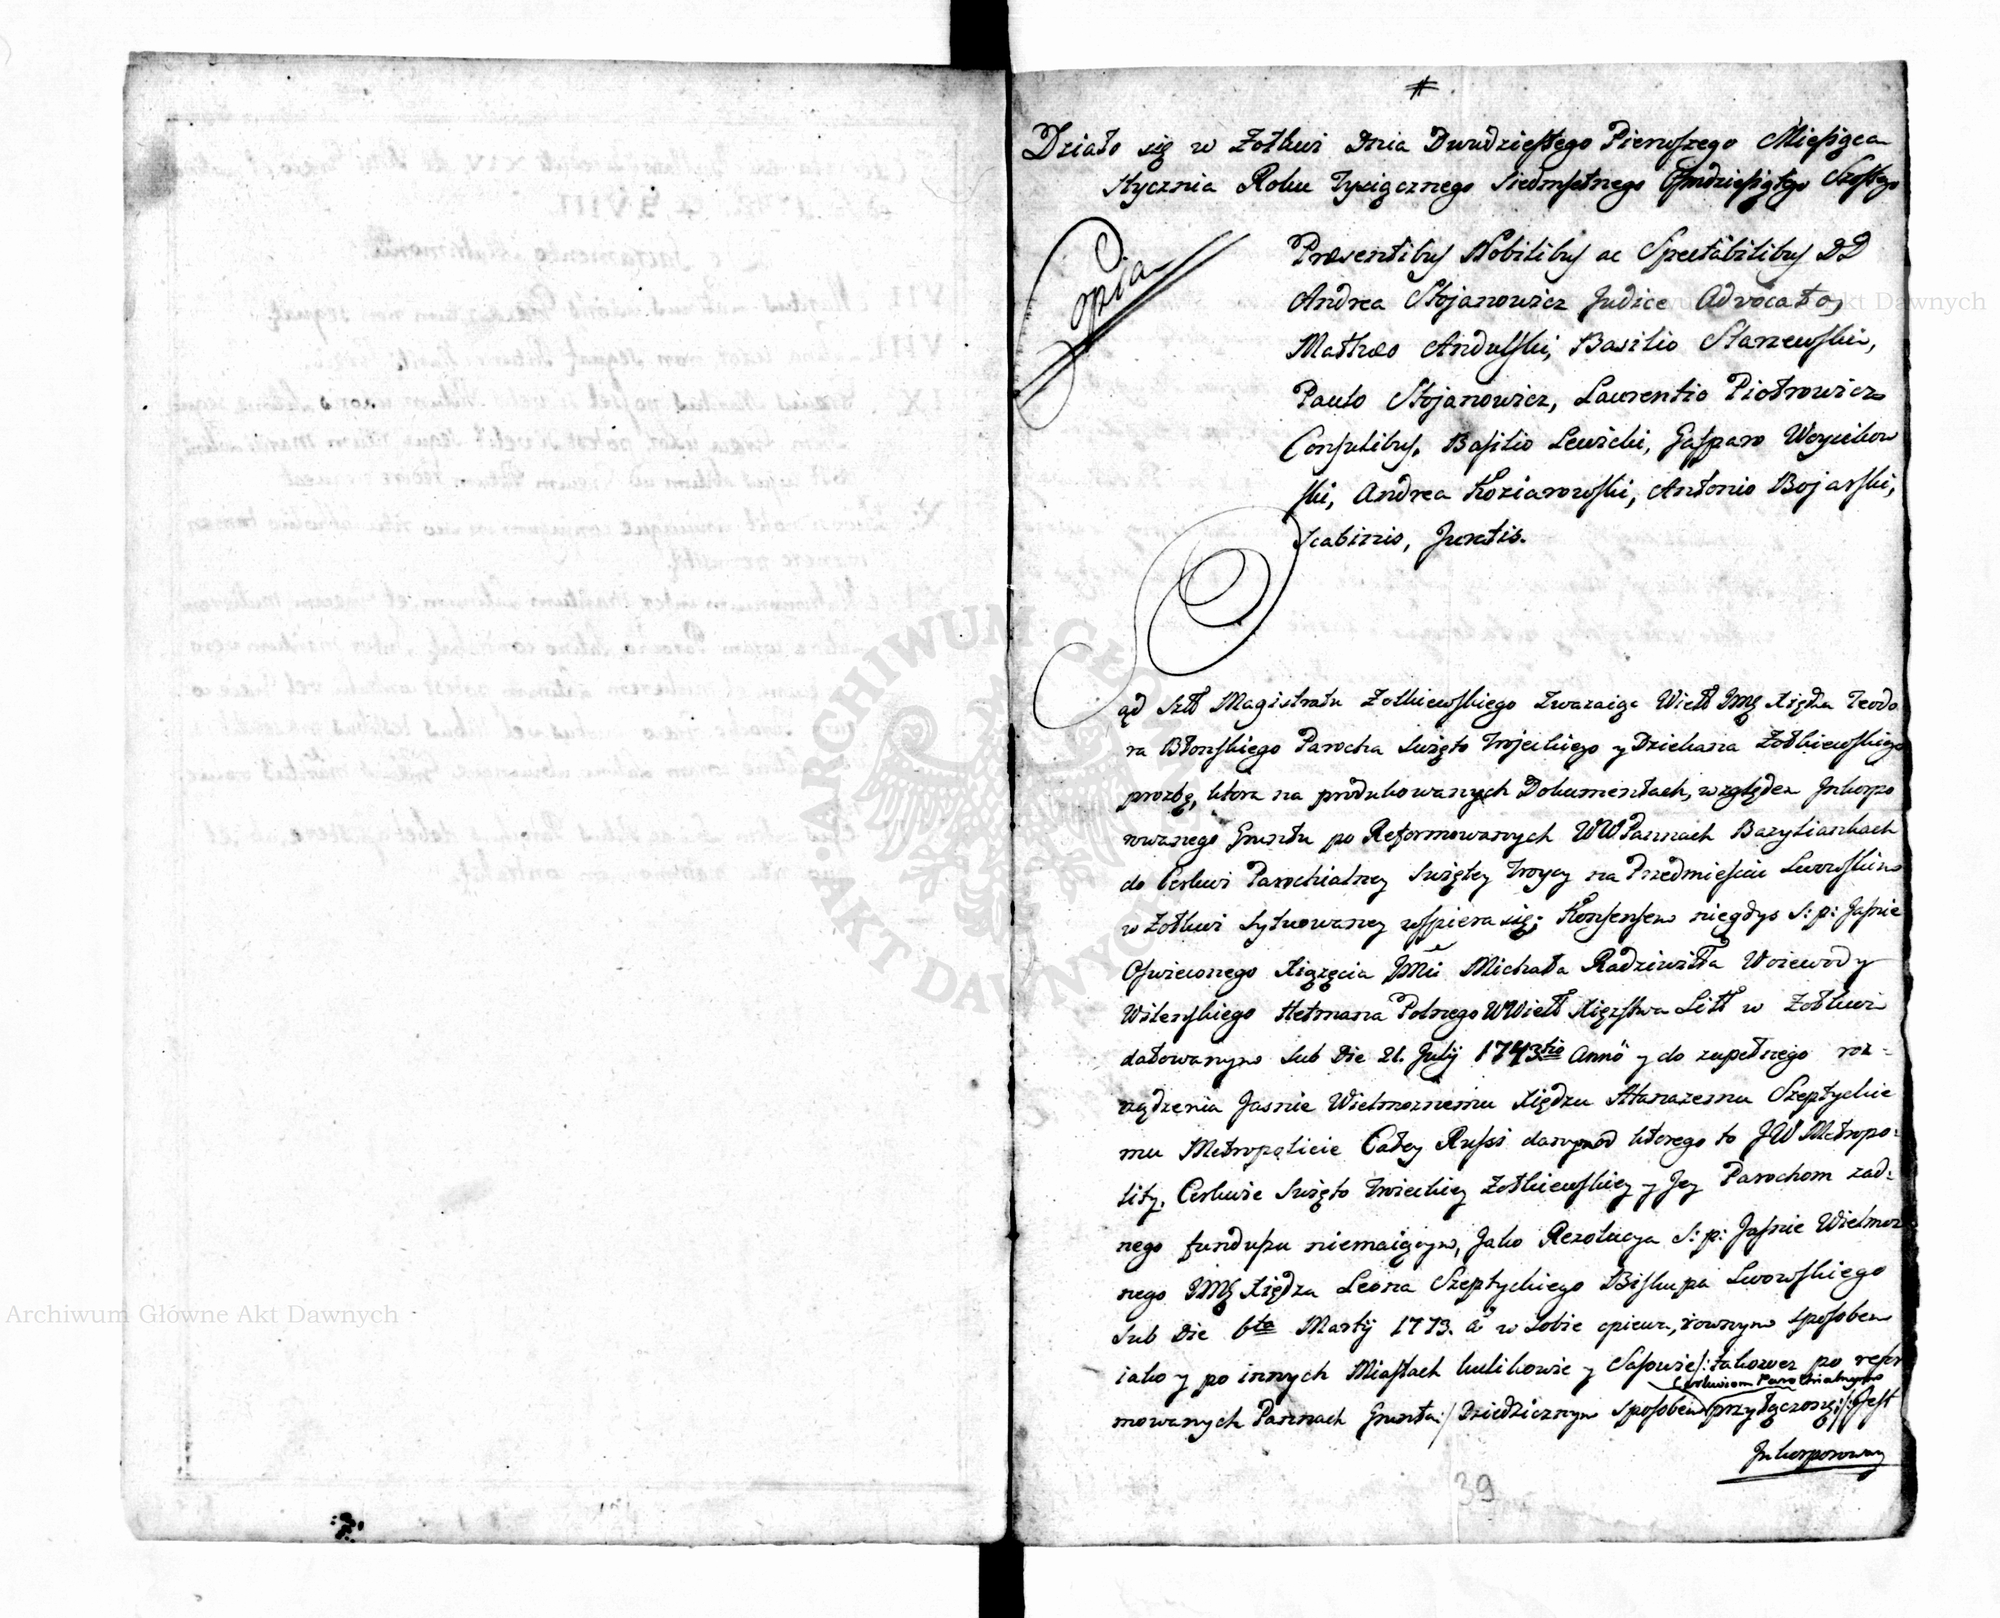 #
Działo się w Żołkwi Dnia Dwudziestego Pierwszego Miesiąca
Stycznia Roku Tysiącznego Siedmsetnego Osmdziesiątego Szostego
Copia
Præsentibus Nobilibus ac Spectabilibus DD
Andrea Stojanowicz Judice Advocato,
Mathæo Andulski, Basilio Starzewski,
Paulo Stojanowicz, Laurentio Piotrowicz
Consulibus, Basilio Lewicki, Gasparo Woycikow
ski, Andrea Koziarowski, Antonio Bojarski,
Scabinis, Juratis.
Sąd Szll Magistratu Żołkiewskiego Zwazaiąc Wiell JMę Xiędza Teodo
ra Błonskiego Parocha Swięto Troieckiego y Dziekana Żołkiewskiego
prozbę, ktora na produkowanych Dokumentach, względem Inkorpo
rowanego Gruntu po Reformowanych WW Pannach Bazyliankach
do Cerkwi Parochialney Swiętey Troycy na Przedmiesciu Lwowskim
w Żołkwi Sytuowaney wspiera się; Konsensem niegdys S: p: Jasnie
Oswieconego Xiążęcia JMci Michała Radziwiłła Woiewody
Wilenskiego Hetmana Polnego WWiell Xięzstwa Litt w Żołkwi
datowanym Sub Die 21. Julij 1743tio Anno y do zupełnego roz-
rządzenia Jasnie Wielmoznemu Xiędzu Atanazemu Szeptyckie
mu Metropolicie Całey Russi danym od ktorego to JW Metropo-
lity, Cerkwie Swięto Troieckiey Żołkiewskiey y Jey Parochom zad-
nego funduszu niemaiącym, Jako Rezolucya S: p: Jasnie Wielmoz
nego JMę Xiędza Leona Szeptyckiego Biskupa Lwowskiego
Sub Die 6ta Martij 1773. a w Sobie opiewa, rownym Sposobem
iako y po innych Miastach Kulikowie y Sasowie /: takowez po refor
Cerkwiom Parochialnym
mowanych Pannach Grunta :/ Dziedzicznym Sposobem przyłączone :/ Jest
Inkorporowany
39
ARCHIWUM GŁÓWNE AKT DAWNYCH
Archiwum Główne Akt Dawnych
Archiwum Główne Akt Dawnych